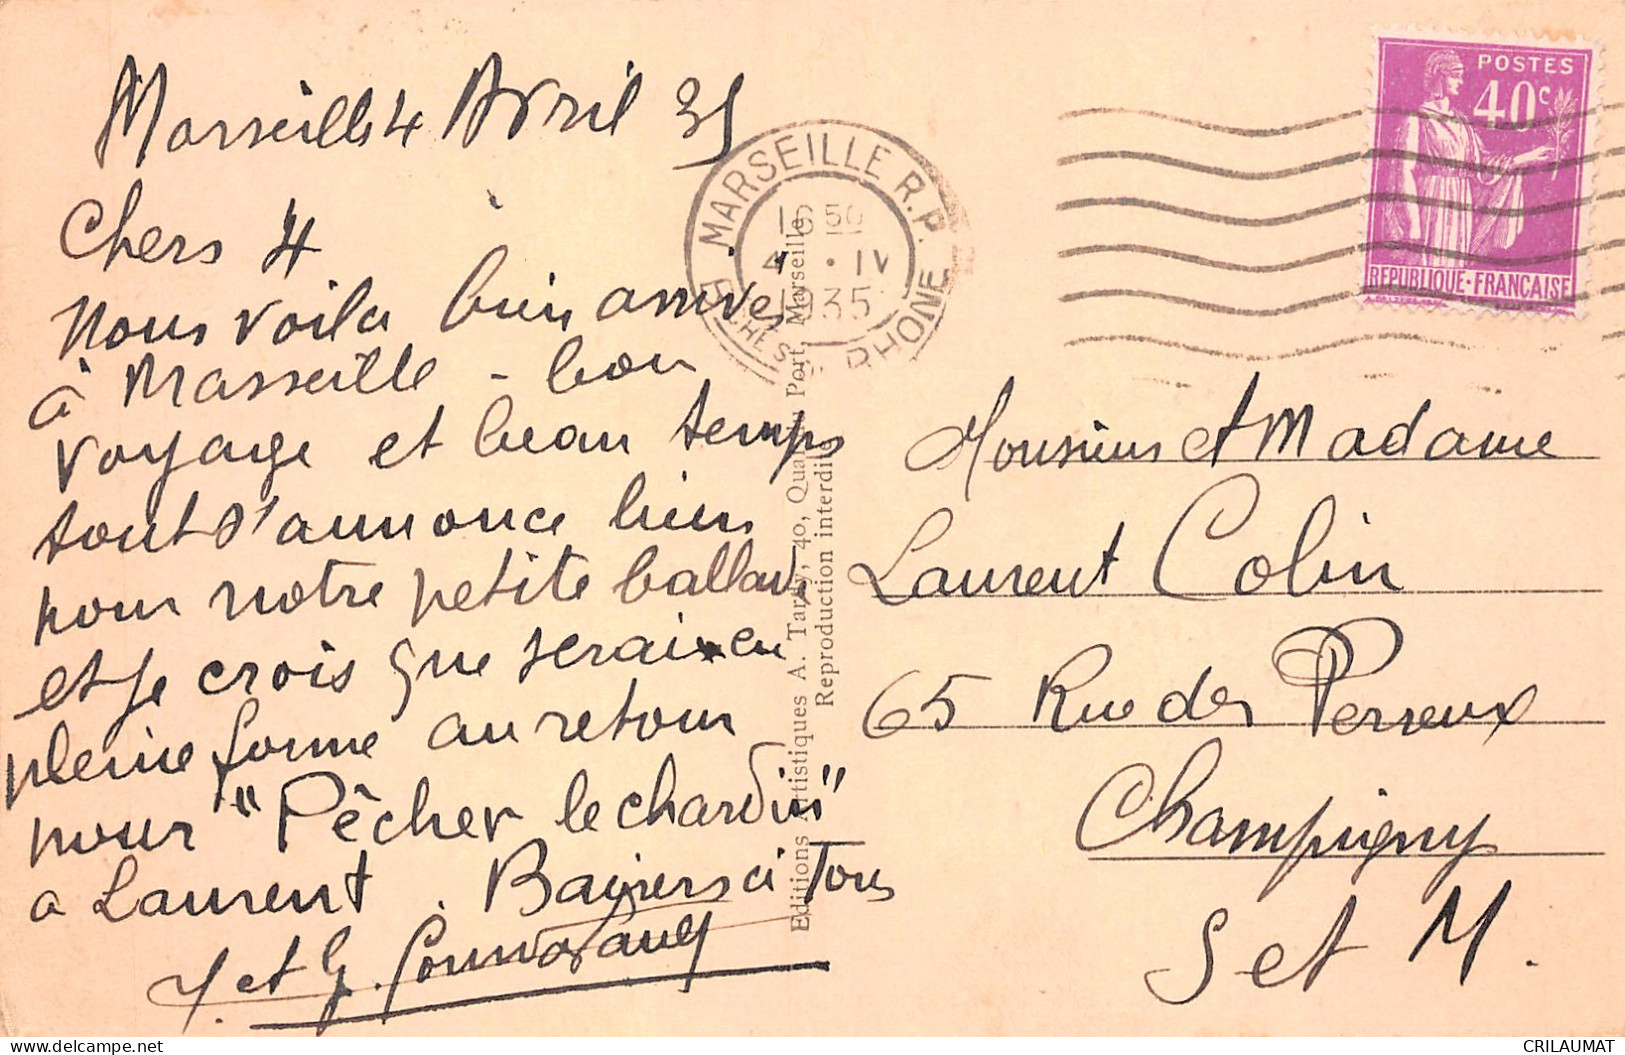 Marseille 4 Avril 35
Chers 4
Nous voila bien arrivés
à Marseille - bon
voyage et beau temps
tout s'annonce bien
pour notre petite ballade
et je crois que serai en
pleine forme au retour
pour "Pêcher le chardin"
a Laurent. Baisers à Tous
Y. et G.
MARSEILLE R.P.
16 50
4 · IV
1935
BCHES DU RHONE
POSTES
40c
REPUBLIQUE·FRANÇAISE
Editions Artistiques A. Tardy, 40, Quai du Port, Marseille
Reproduction interdite
Monsieur et Madame
Laurent Colin
65 Rue des Perreux
Champigny
S et M.
www.delcampe.net
CRILAUMAT